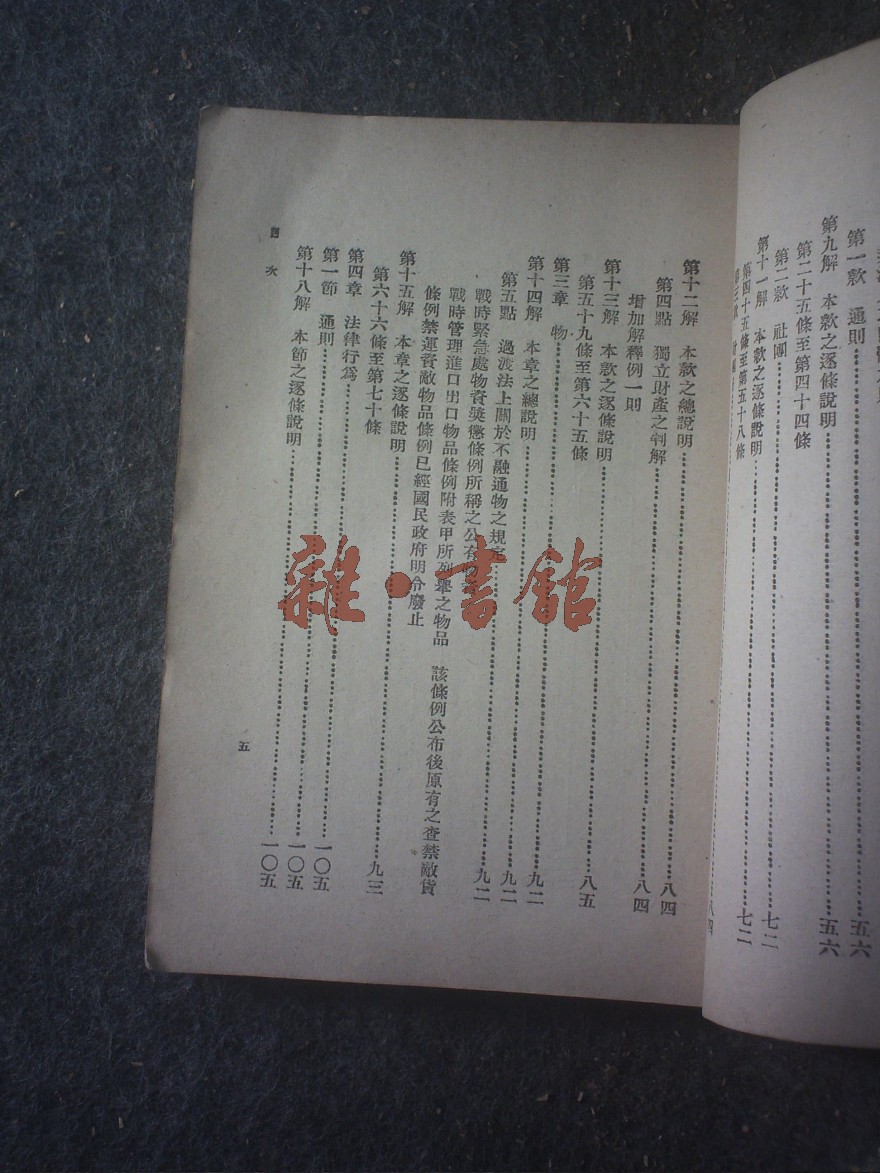 第一款　通則……五六
第九解　本款之逐條說明……五六
第二十五條至第四十四條
第二款　社團……七二
第十一解　本款之逐條說明……七二
第四十五條至第五十八條
八四
第十二解　本款之總說明……八四
第四點　獨立財產之判解……八四
增加解釋例一則
第十三解　本款之逐條說明……八五
第五十九條至第六十五條
第三章　物……九二
第十四解　本章之總說明……九二
第五點　過渡法上關於不融通物之規定……九二
戰時緊急處物資獎懲條例所稱之公有
戰時管理進口出口物品條例附表甲所列舉之物品　該條例公布後原有之查禁敵貨
條例禁運資敵物品條例已經國民政府明令廢止
第十五解　本章之逐條說明……九三
第六十六條至第七十條
第四章　法律行為……一〇五
第一節　通則……一〇五
第十八解　本節之逐條說明……一〇五
目次
五
雜·書館